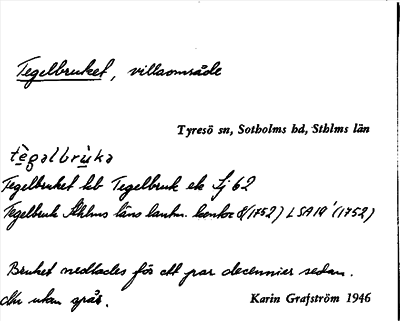 Tegelbruket, villaområde
Tyresö sn, Sotholms hd, Sthlms län
tègəlbrùkə
Tegelbruket hb Tegelbruk ek Lj 62
Tegelbruk Sthlms läns lantm. kontor (1752) LSA 19 (1752)
Bruket nedlades för ett par decennier sedan.
utan spår.
Karin Grafström 1946